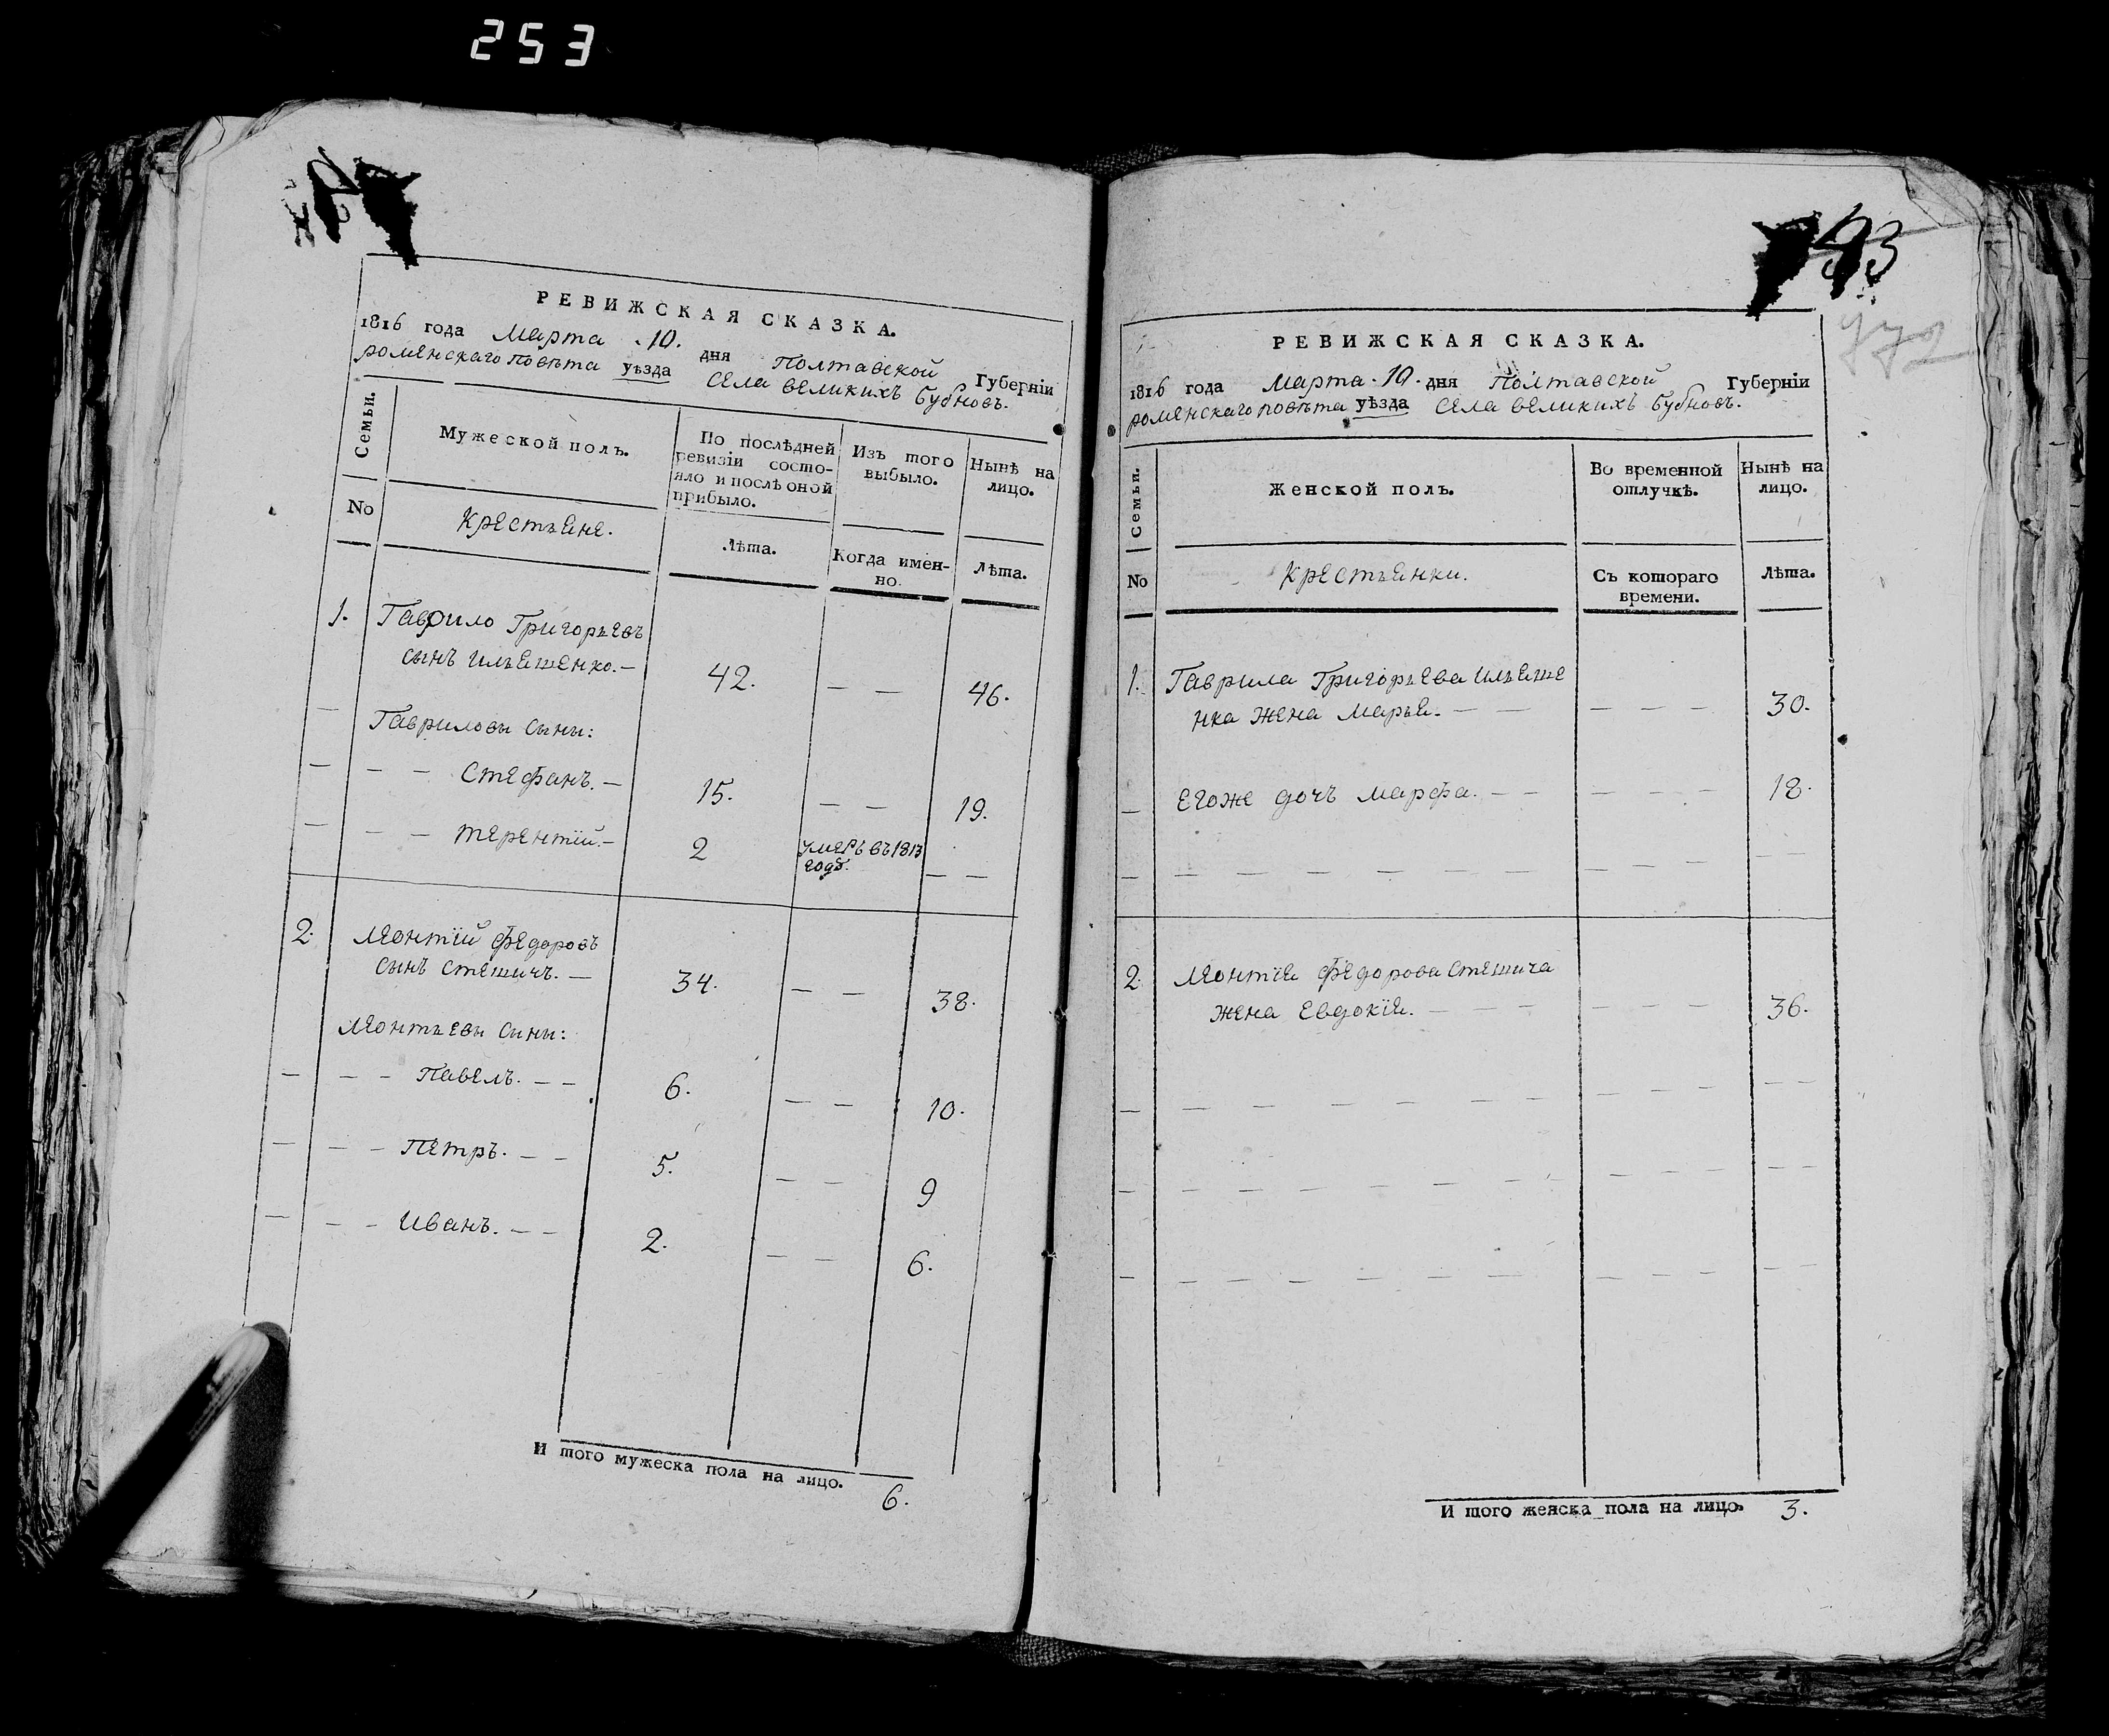 253
РЕВИЖСКАЯ СКАЗКА.
1816 года Марта 10. дня Полтавской Губерніи
роменскаго повѣта уѣзда села великихъ Бубновъ.
Семьи.
Мужеской полъ.
По послѣдней ревизіи состо-
яло и послѣ оной прибыло.
Изъ того выбыло.
Нынѣ на лицо.
No
Крестьяне.
Лѣта.
Когда имен-
но.
Лѣта.
1. Гаврило Григорьевъ
сынъ Ильяшенко. — 42. — — 46.
— Гавриловы сыны:
— — — Стефанъ. — 15. — — 19.
— — — Терентїй. — 2 умеръ въ 1813 — —
годꙋ.
2. Леонтїй Федоровъ
сынъ Стешичъ. — 34. — — 38.
Леонтьевы сыны:
— — — Павелъ. — — 6. — — 10.
— — — Петръ. — — 5. — — 9
— — — Иванъ. — — 2. — — 6.
И того мужеска пола на лицо. 6.
493
772
РЕВИЖСКАЯ СКАЗКА.
1816 года Марта. 10. дня Полтавской Губерніи
роменскаго повѣта уѣзда села великихъ Бубновъ.
Семьи.
Женской полъ.
Во временной
отлучкѣ.
Нынѣ на
лицо.
No
Крестьянки.
Съ котораго
времени.
Лѣта.
1. Гаврила Григорьева Ильяше
нка жена Марья. — — — — — 30.
— Егоже дочъ Марфа. — — — — — 18.
2. Леонтїя Федорова Стешича
жена Евдокїя. — — — — — — 36.
И того женска пола на лицо. 3.